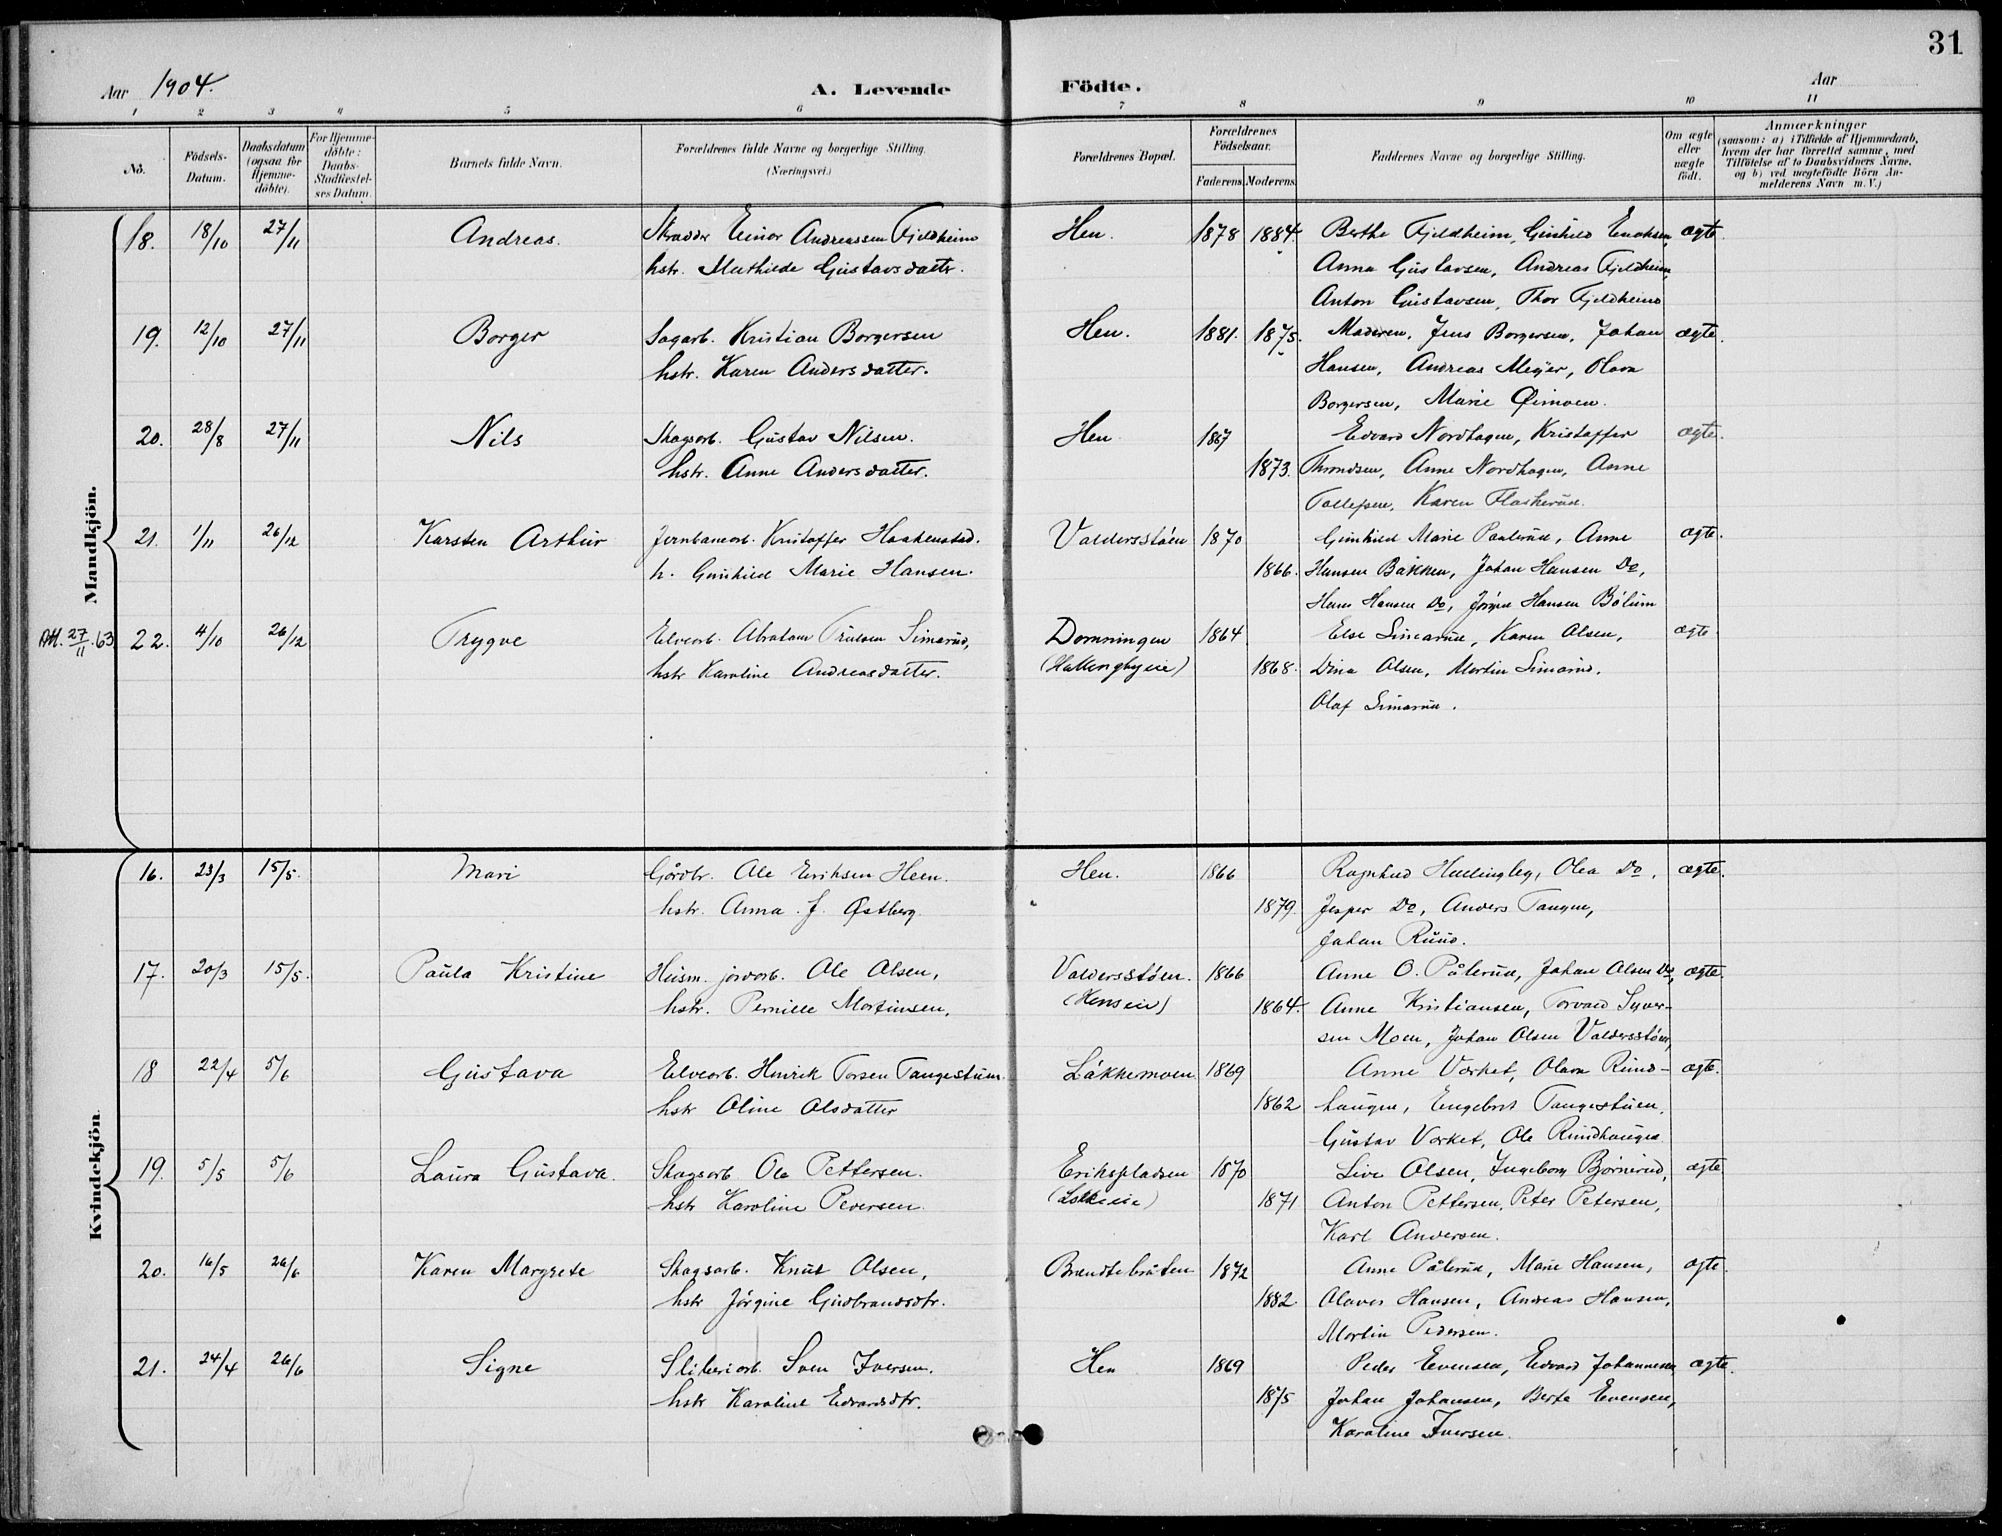 31
Aar 1904.
A. Levende Födte.
Aar
1 2 3 4 5 6 7 8 9 10 11
No.
Födsels-Datum.
Daabsdatum (ogsaa for Hjemme-döbte).
For Hjemme-döbte: Daabs-Stadfæstel-ses Datum.
Barnets fulde Navn.
Forældrenes fulde Navne og borgerlige Stilling. (Næringsvei.)
Forældrenes Bopæl.
Forældrenes Födselsaar.
Faderens. Moderens.
Faddernes Navne og borgerlige Stilling.
Om ægte eller uægte födt.
Anmærkninger
(saasom: a) i Tilfælde af Hjemmedaab, hvem der har forrettet samme, med Tilföielse af to Daabsvidners Navne, og b) ved uægtefödte Börn An-melderens Navn m. V.)
Mandkjön.
18. 18/10 27/11 Andreas. Skrædder Einar Andreassen Fjeldheim Hen. 1878 1884. Berthe Fjeldheim, Gunhild Enoksen, ægte.
hstr. Mathilde Gustavsdatter. Anna Gustavsen, Andreas Fjeldheim,
Anton Gustavsen, Thor Fjeldheim
19. 12/10 27/11 Borger Sagarb. Kristian Borgersen Hen. 1881. 1875. Moderen, Jens Borgersen, Johan ægte.
hstr. Karen Andersdatter. Hansen, Andreas Meyer, Olava
Borgersen, Marie Øimoen.
20. 28/8 27/11 Nils Skogsarb. Gustav Nilsen. Hen. 1867 Edvard Nordhagen, Kristoffer ægte.
hstr. Anne Andersdatter. 1873. Throndsen, Anne Nordhagen, Anne
Tollefsen, Karen Flaskerud.
21. 1/11 26/12 Karsten Arthur Jernbanearb. Kristoffer Haakenstad. Valdersstøen 1870 Gunhild Marie Paalerud, Anne ægte.
h. Gunhild Marie Hansen. 1866. Hansen Bakken, Johan Hansen Do,
Hans Hansen Do, Jørgen Hansen Bølum
Att. 27/11.63 22. 4/10 26/12 Trygve Elvearb. Abraham Trulsen Simarud, Domningen 1864 Else Simarud, Karen Olsen, ægte
hstr Karoline Andreasdatter. (Hallingbyeie) 1868. Dina Olsen, Martin Simarud,
Olaf Simarud.
Kvindekjön.
16. 23/3 15/5. Mari Gårdbr. Ole Eriksen Heen. Hen. 1866 Ragnhild Hallingby, Olea Do, ægte.
hstr. Anna J. Østberg. 1879. Jesper Do, Anders Tangen,
Johan Ruud.
17. 20/3 15/5. Paula Kristine Husm. jordarb. Ole Olsen, Valdersstøen. 1866 Anne O. Pålerud, Johan Olsen Do, ægte.
hstr. Pernille Mortinsen, (Henseie) 1864. Anne Kristiansen, Torvald Syver-
sen Moen, Johan Olsen Valdersstøen,
18 22/4 5/6 Gustava Elvearb. Henrik Torsen Tangestuen. Låkkemoen 1869 Anne Værket, Olava Rund- ægte.
hstr Oline Olsdatter 1862 haugen, Engebret Tangestuen,
Gustav Værket, Ole Rundhaugen
19. 5/5 5/6 Laura Gustava. Skogsarb Ole Pettersen. Erikspladsen 1870 Live Olsen, Ingeborg Bjørnerud, ægte
hstr Karoline Pedersen. 1871 Anton Pettersen, Peter Petersen,
Karl Andersen.
20. 16/5 26/6 Karen Margrete Skogsarb. Knut Olsen, Brændtebråten 1872 Anne Pålerud, Marie Hansen, ægte.
hstr Jörgine Gudbrandsdtr. 1882. Olaves Hansen, Andreas Hansen,
Martin Pedersen.
21. 24/4 26/6 Signe Sliberiarb. Sven Iversen. Hen 1869 Peder Evensen, Edvard Johannesen, ægte.
hstr Karoline Edvardsdtr. 1875 Johan Johansen, Berte Evensen,
Karoline Iversen.